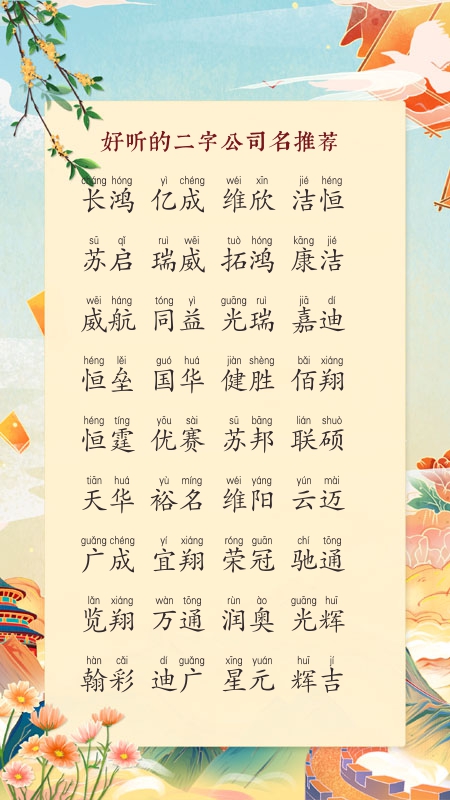 好听的二字公司名推荐
cháng hóng yì chéng wéi xīn jié héng
长鸿 亿成 维欣 洁恒
sū qǐ ruì wēi tuò hóng kāng jié
苏启 瑞威 拓鸿 康洁
wēi háng tóng yì guāng ruì jiā dí
威航 同益 光瑞 嘉迪
héng lěi guó huá jiàn shèng bǎi xiáng
恒垒 国华 健胜 佰翔
héng tíng yōu sài sū bāng lián shuò
恒霆 优赛 苏邦 联硕
tiān huá yù míng wéi yáng yún mài
天华 裕名 维阳 云迈
guǎng chéng yí xiáng róng guān chí tōng
广成 宜翔 荣冠 驰通
lǎn xiáng wàn tōng rùn ào guāng huī
览翔 万通 润奥 光辉
hàn cǎi dí guǎng xīng yuán huī jí
翰彩 迪广 星元 辉吉